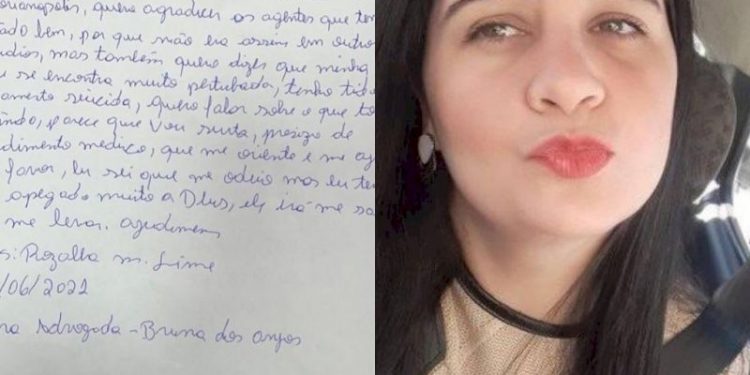 rianopolis, quero agradecer os agentes que tem
ado bem, por que não era assim em outro
dios, mas também quero dizer que minha
se encontra muito perturbada, tenho tid
amento suicida, quero falar sobre o que to
indo, parece que vou surta, preciso de
dimento médico, que me oriente e me aj
favor, Eu sei que me odeio mas eu te
apegado muito a Deus, ele irá me sa
me levar. ajudimem
s: Rozalba m. Lime
/06/2022
na Advogada - Bruna dos anjos